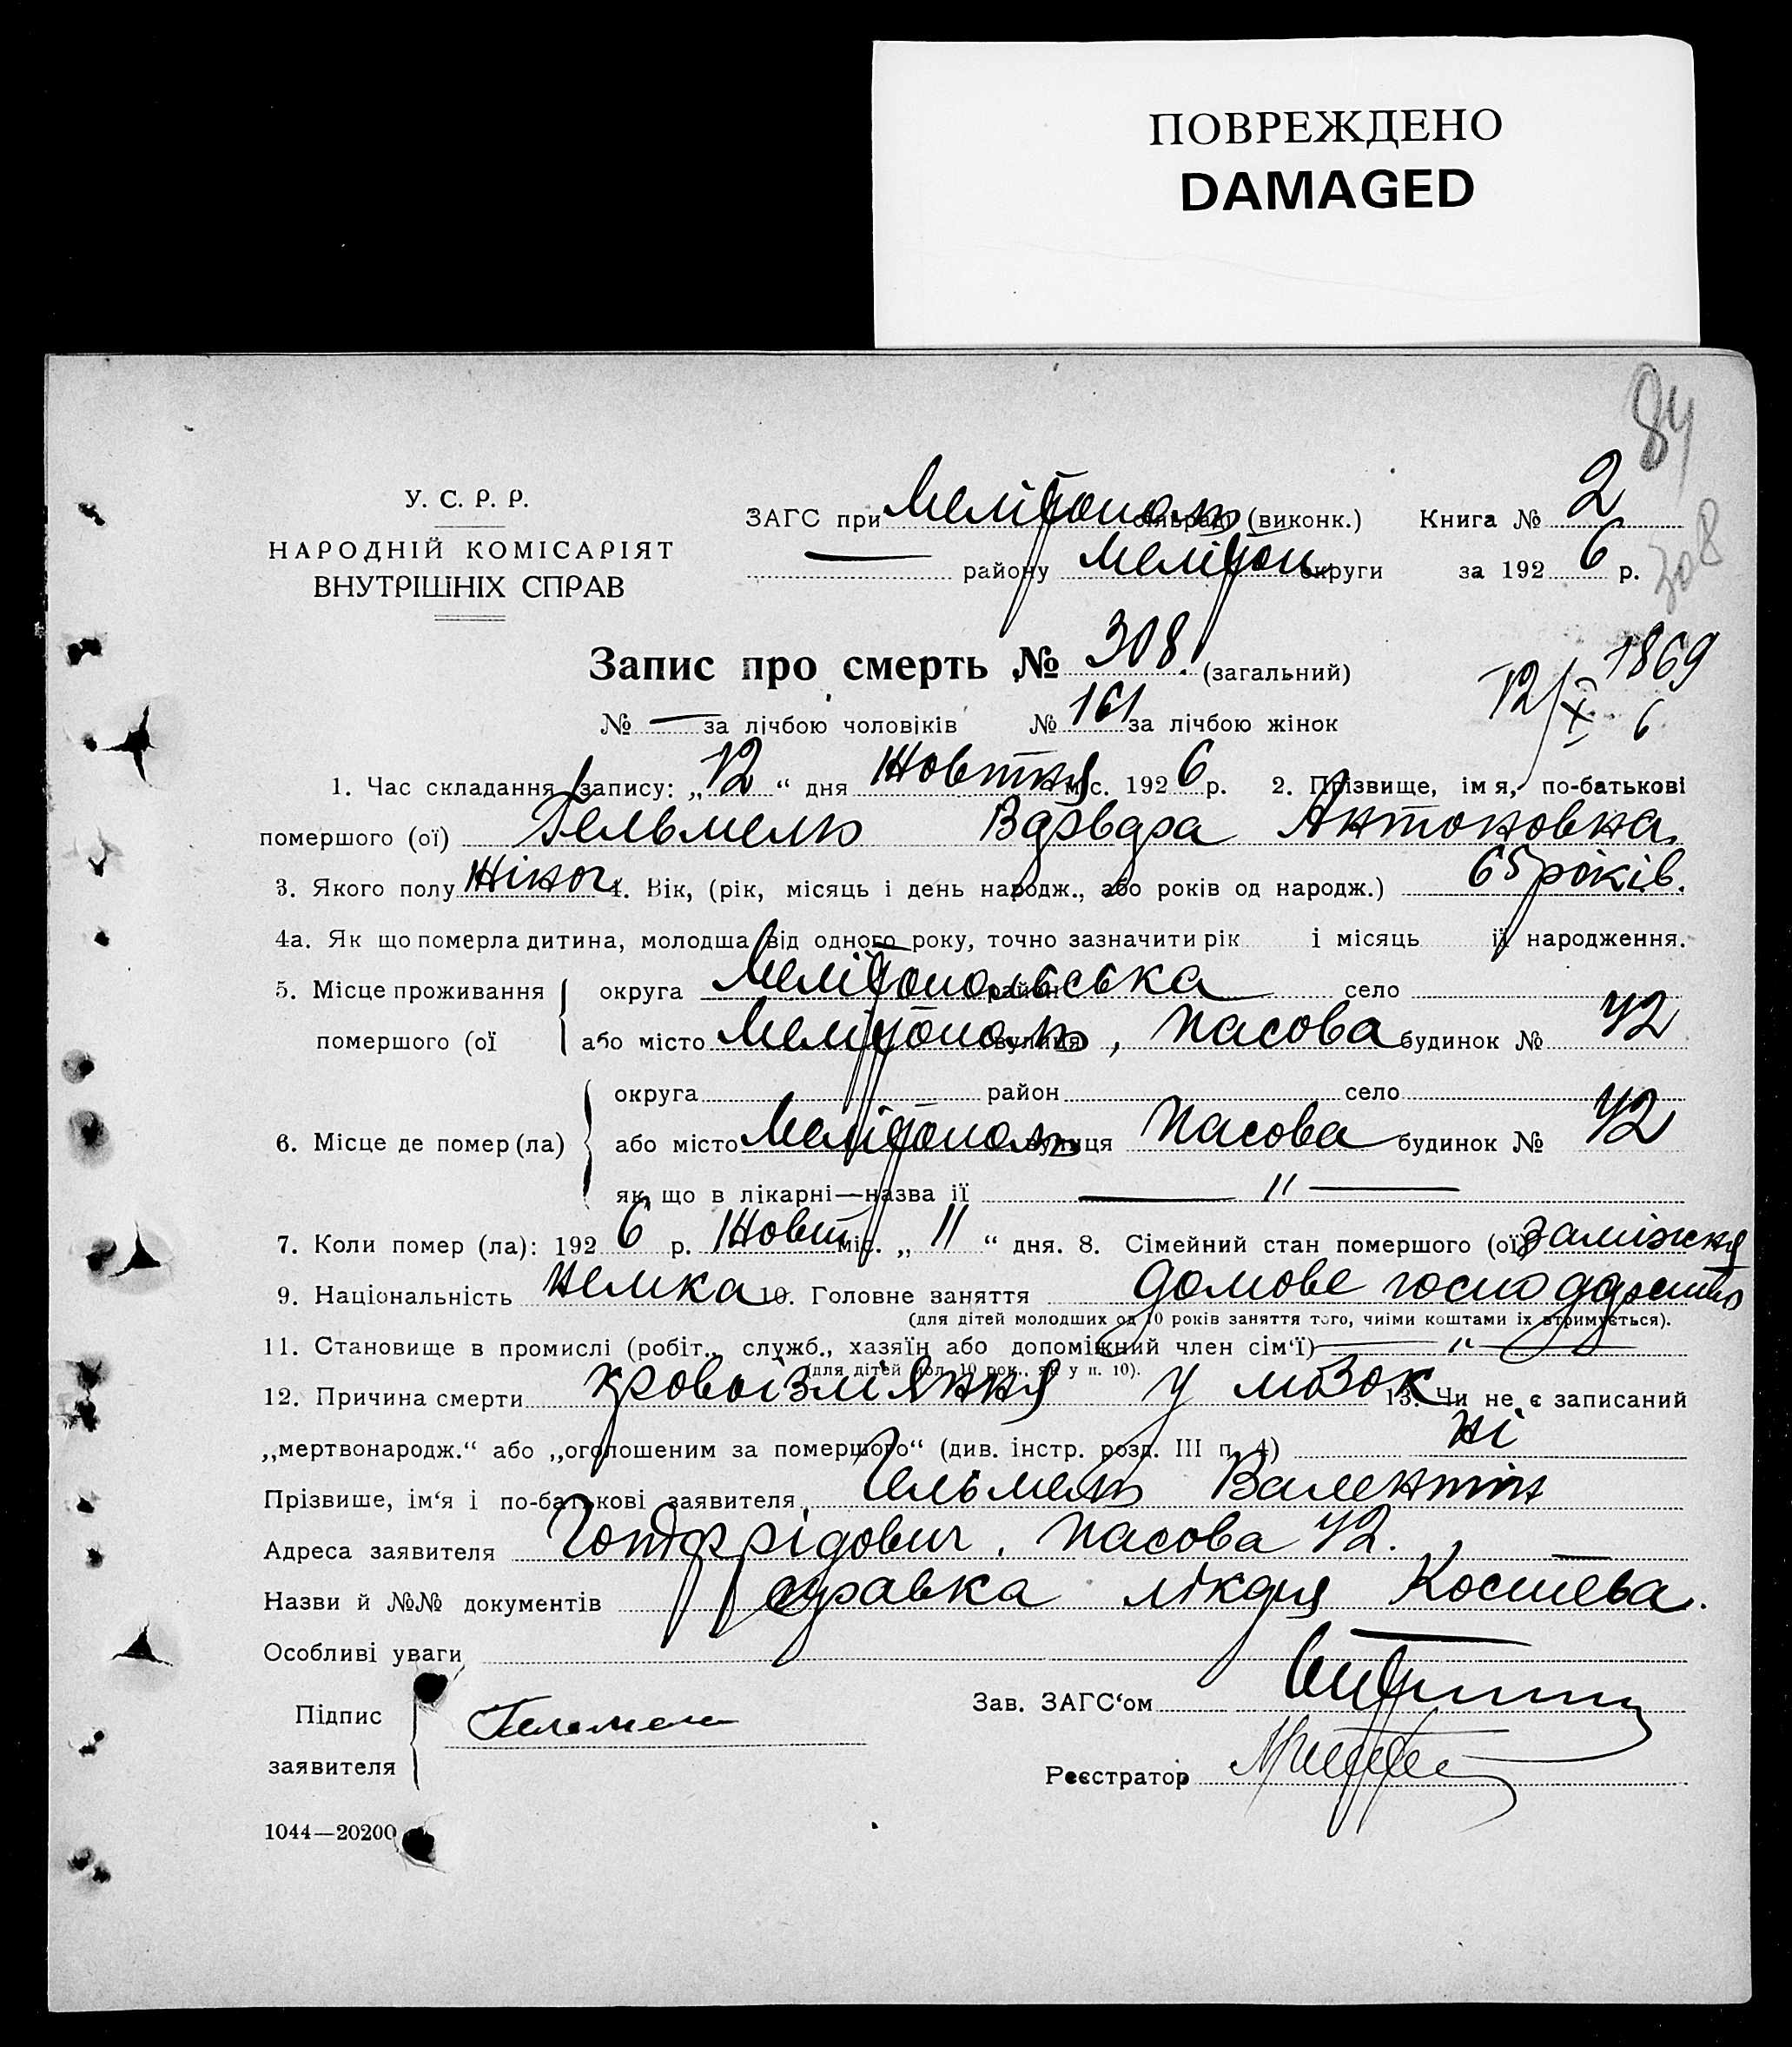 ПОВРЕЖДЕНО
DAMAGED
84
308
У. С. Р. Р.
НАРОДНІЙ КОМІСАРІЯТ
ВНУТРІШНІХ СПРАВ
ЗАГС при Меліtополь сільраді (виконк.) Книга № 2
— району Меліtоп округи за 1926 р.
Запис про смерть № 308. (загальний)
1869
12/X 6
№ — за лічбою чоловіків № 161 за лічбою жінок
1. Час складання запису: „12“ дня Жовтня міс. 1926 р. 2. Прізвище, імя, по-батькові
помершого (ої) Гельмель Варвара Антоновна
3. Якого полу Жіноч. 4. Вік, (рік, місяць і день народж., або років од народж.) 65 років.
4а. Як що померла дитина, молодша від одного року, точно зазначити рік і місяць її народження.
5. Місце проживання округа Меліtопольська район село
помершого (ої або місто Меліtополь вулиця, Пасова будинок № 42
округа район село
6. Місце де помер (ла) або місто Меліtополь вулиця Пасова будинок № 42
як що в лікарні—назва її — " —
7. Коли помер (ла): 1926 р. Жовт міс. „11“ дня. 8. Сімейний стан помершого (ої) заміжня
9. Національність немка 10. Головне заняття домове господарство
(для дітей молодших од 10 років заняття того, чиїми коштами їх втримується).
11. Становище в промислі (робіт., служб., хазяїн або допоміжний член сім‘ї) — " —
(для дітей мол. 10 рок., як у п. 10).
12. Причина смерти у мозок 13. Чи не є записаний
„мертвонародж.“ або „оголошеним за помершого“ (див. інстр. розд. III п. 4) ні
Прізвише, ім‘я і по-батькові заявителя Гельмель Валентін
Адреса заявителя Готфрідович, Пасова 42. —
Назви й №№ документів справка лікаря Костева.
Особливі уваги —
Підпис
заявителя
Гельмель
Зав. ЗАГС‘ом
Реєстратор
1044—20200